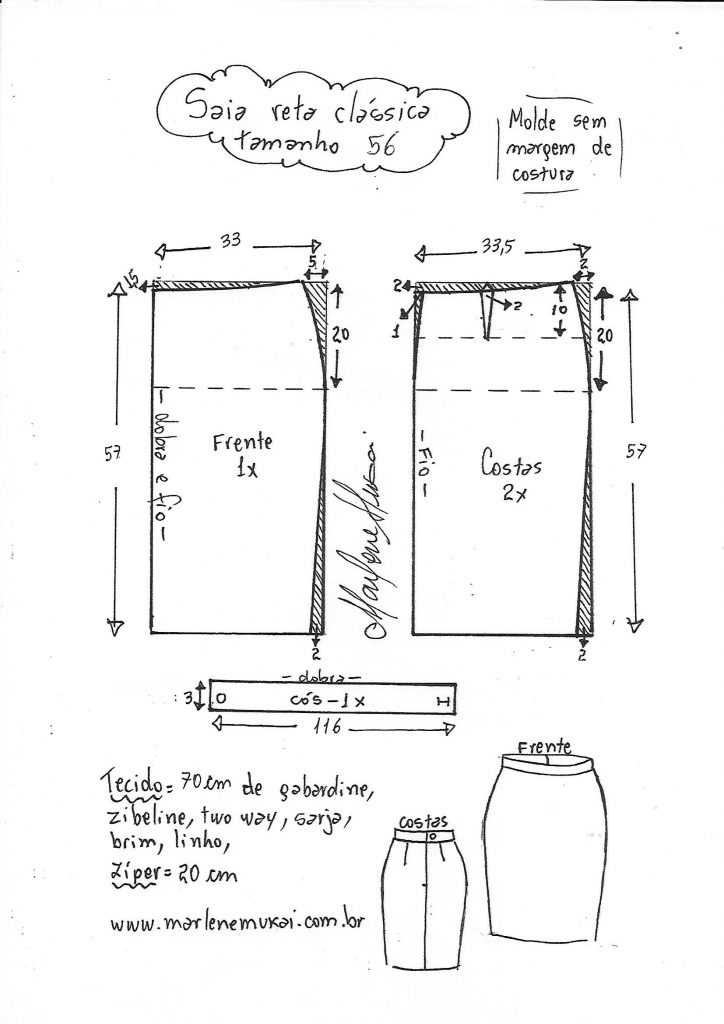 Saia reta clássica
tamanho 56
Molde sem
margem de
costura
33
5
1,5
20
57
- dobra e fio -
Frente
1x
2
Marlene Mukai
33,5
2
2
1
2
10
20
57
- Fio -
Costas
2x
2
- dobra -
3
cós - 1x
116
Tecido = 70 cm de gabardine,
zibeline, two way, sarja,
brim, linho,
Zíper = 20 cm
www.marlenemukai.com.br
Costas
Frente